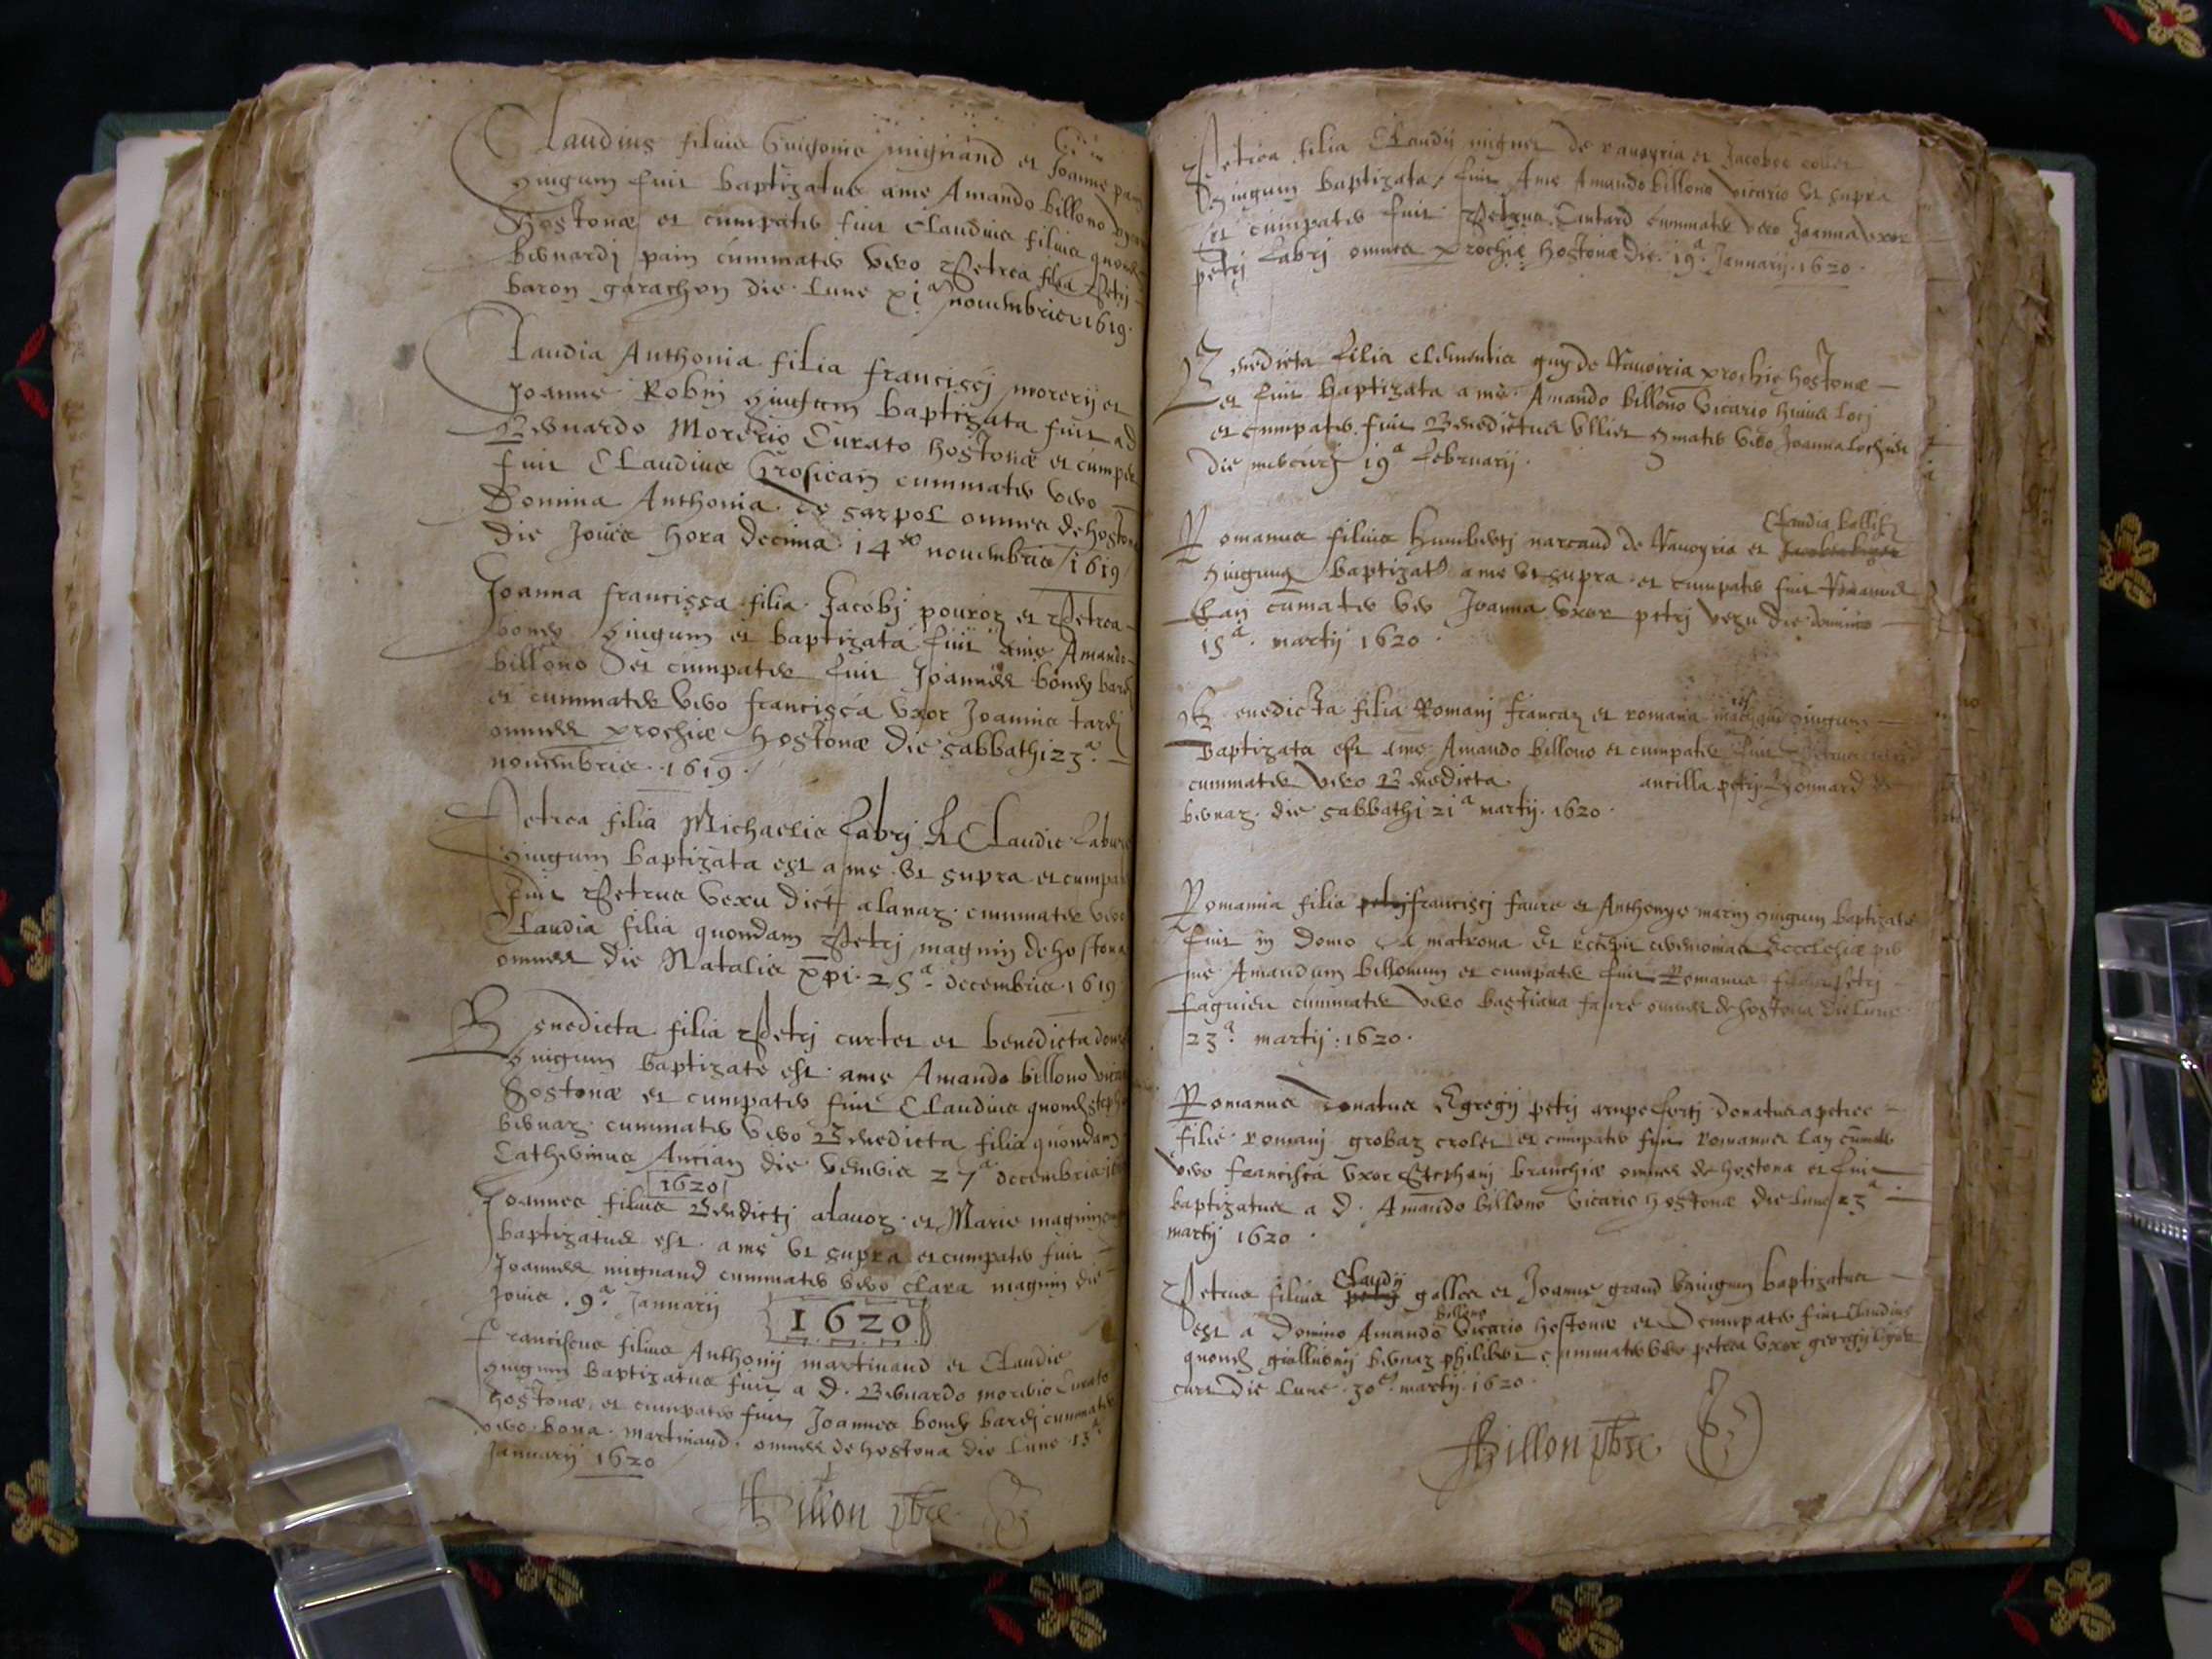 Claudius filius Guigonis mignand et Joanne pain
coniugum fuit baptizatus a me Amando billono
hostonæ et cumpater fuit Claudius filius quond
bernardj pain cummater vero Petrea filia Petrj
baron garachon die lune xj.a nouembris 1619.
Claudia Anthonia filia franciscj morerij et
Joanne Robin coniugum baptizata fuit a d
Bernardo Morerio Curato hostonæ et cumpater
fuit Claudius Grosican cummater vero
Domina Anthonia de sarpol omnes de hostona
die Jouis hora decima 14.ta nouembris 1619
Joanna francissca filia Jacobj pouroz et Petrea
boney coniugum et baptizata fuit a me Amando
billono et cumpater fuit Joannes boney bardj
et cummater vero francisca uxor Joannis tardj
omnes prochiæ hostonæ die sabbathi 23.a
nouembris 1619.
Petrea filia Michaelis fabrj & Claudie
coniugum baptizata est a me ut supra et cumpater
fuit Petrus vexu dict alauaz cummater vero
Claudia filia quondam Petrj magnin de hostona
omnes die Natalis xpi 25.a decembris 1619
Benedicta filia Petrj curtet et benedicta
coniugum baptizate est a me Amando billono
hostonæ et cumpater fuit Claudius quond
bernaz cummater vero Benedicta filia quondam
Catherinus Ancian die veneris 27.a decembris
1620
Joannes filius Benedictj alauoz et Marie magnin
baptizatus est a me ut supra et cumpater fuit
Joannes mignand cummater vero clara magnin die
Jouis 9.a Januarij
1620
franciscus filius Anthonij martinand et Claudie
coniugum baptizatus fuit a d. Bernardo morerio Curato
hostonæ et cumpater fuit Joannes boney bardj cummater
vero bona martinand omnes de hostona die lune 13.a
Januarij 1620
Billon pbre
Petrea filia Claudij mignet de rauoyria et Jacobee collet
coniugum baptizata fuit a me Amando billono vicario ut supra
et cumpater fuit Petrus Cintard cummater vero Joanna uxor
petrj fabrj omnes prochiæ hostonæ die 19.a Januarij 1620.
Benedicta filia clementis guy de Rauoiria prochiæ hostonæ
et fuit baptizata a me Amando billono vicario huius locj
et cumpater fuit Benedictus Ullier cumater vero Joanna
die mercurij 19.a februarij.
Claudia
Romanus filius humbertj narcaud de Rauoyria et
coniugum baptizatus a me ut supra et cumpater fuit Romanus
Lay cumater vero Joanna uxor petrj vexu die dominico
15.a martij 1620.
Benedicta filia Romanj francaz et romana coniugum
baptizata est a me Amando billono et cumpater fuit Petrus
cummater vero Benedicta ancilla petrj Lyonnard de
bernaz die sabbathi 21.a martij 1620.
Romania filia petrj franciscj faure et Anthonye marin coniugum baptizata
fuit in domo a matrona et recepit ceremonias Ecclesiæ per
me Amandum billonum et cumpater fuit Romanus filius Petrj
faguieu cummater vero bastiana faure omnes de hostona die lune
23.a martij 1620.
Romanus donatus Egregij petrj donatus a petree
filie romanj grobaz crolet et cumpater fuit romanus lay cumater
vero francisca uxor Stephanj branchiæ omnes de hostona et fuit
baptizatus a d. Amando billono vicario hostonæ die lune 23.a
martij 1620.
Claudij
Petrus filius petrj gallos et Joanne grand coniugum baptizatus
billono
est a Domino Amando vicario hostonæ et cumpater fuit Claudius
quond bernaz philibert cummater vero petrea uxor georgij
curt die lune 30.a martij 1620.
Billon pbre